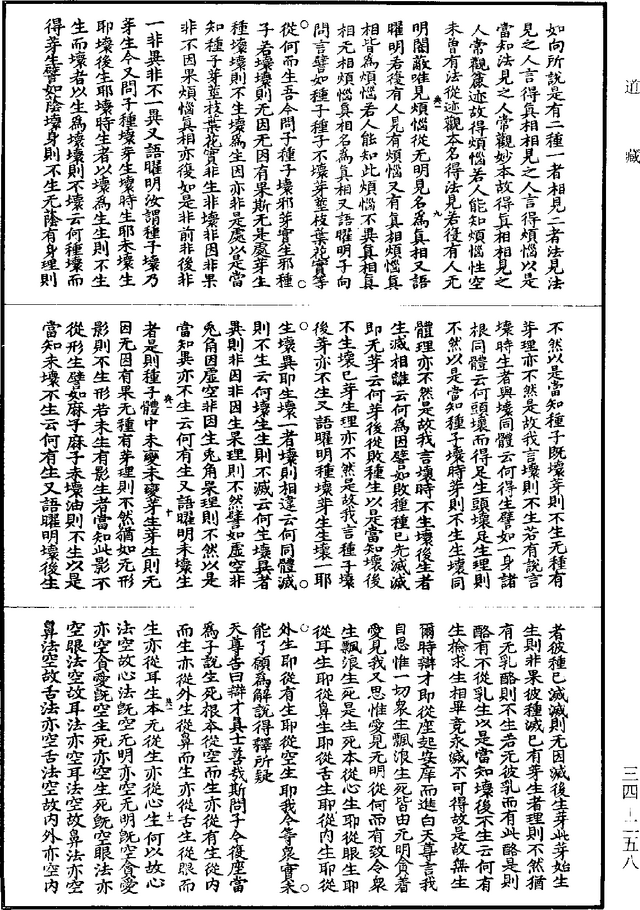 道藏
如向所說是有二種一者相見二者法見法
見之人言得真相相見之人言得煩惱以是
當知法見之人常觀妙本故得真相相見之
人常觀麁迹故得煩惱若人能知煩惱性空
未曾有法從迹觀本名得法見若復有人无
明闇敵唯見煩惱從无明見名為真相又語
曜明若復有人見有煩惱又有真相煩惱真
相皆為煩惱若人能知此煩惱不異真相真
相无相煩惱真相名為真相又語曜明子向
問言譬如種子種子不壞芽莖枝葉花實等
從何而生吾今問子種子壞邪芽實生邪種
子若壞壞則无因无因有果斯无是處芽生
種壞壞則不生壞為生因亦非是處以是當
知種子芽莖枝葉花實非生非壞非因非果
非不因果煩惱真相亦復如是非前非後非
一非異非不一異又語曜明汝謂種子壞乃
芽生今又問子種壞芽生壞時生耶未壞生
耶壞後生耶壞時生者以壞為生生則不生
生而壞者以生為壞壞則不壞云何種壞而
得芽生譬如蔭壞身則不生无蔭有身理則
不然以是當知種子旣壞芽則不生无種有
芽理亦不然是故我言壞則不生若有說言
壞時生者與壞同體云何得生譬如一身諸
根同體云何頭壞而得足生頭壞足生理則
不然以是當知種子壞時芽則不生生壞同
體理亦不然是故我言壞時不生壞後生者
生滅相離云何為因譬如敗種種已先滅滅
即无芽云何芽後從敗種生以是當知壞後
不生壞已芽生理亦不然是故我言種子壞
後芽亦不生又語曜明種壞芽生生壞一耶
生壞異耶生壞一者壞則相違云何同體滅
則不生云何壞生生則不滅云何生壞異者
異則非因非因生果理則不然譬如虛空非
兔角因虛空非因生兔角果理則不然以是
當知異亦不生云何有生又語曜明未壞生
者是則種子體中未變未變芽生芽生則无
因无因有果无種有芽理則不然猶如无形
影則不生形若未生有影生者當知此影不
從形生譬如麻子麻子未壞油則不生以是
當知未壞不生云何有生又語曜明壞後生
者彼種已滅滅則无因滅後生芽此芽始生
生則非果彼種滅已有芽生者理則不然猶
有无乳酪則不生若无彼乳而有此酪是則
酪有不從乳生以是當知壞後不生云何有
生檢求生相畢竟永滅不可得故是故無生
爾時辯才即從座起安庠而進白天尊言我
自思惟一切衆生飄浪生死皆由无明貪着
愛見我又思惟愛見无明從何而有致令衆
生飄浪生死是生死本從心生耶從眼生耶
從耳生耶從鼻生耶從舌生耶從內生耶從
外生耶從有生耶從空生耶我今等衆實未
能了願為解說得釋所疑
天尊告曰辯才真士善哉斯問子今復座當
為子說生死根本從空而生亦從有生從內
而生亦從外生從鼻而生亦從舌生從眼而
生亦從耳生本无從生亦從心生何以故心
法空故心法旣空无明亦空无明旣空貪愛
亦空貪愛旣空生死亦空生死旣空眼法亦
空眼法空故耳法亦空耳法空故鼻法亦空
鼻法空故舌法亦空舌法空故內外亦空內
三四—二五八